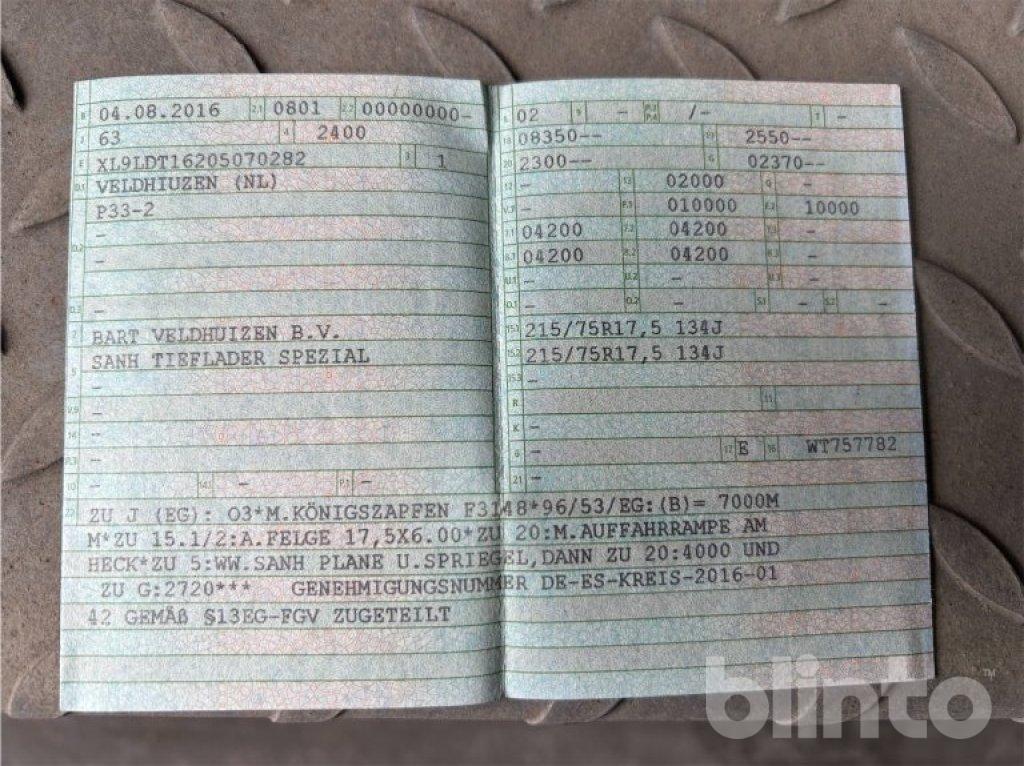 B 04.08.2016 2.1 0801 2.2 00000000-
J 63 4 2400
E XL9LDT16205070282 3 1
D.1 VELDHIUZEN (NL)
P33-2
D.2 -
-
D.3 -
2 BART VELDHUIZEN B.V.
5 SANH TIEFLADER SPEZIAL
-
V.9 -
14 -
P.3 -
10 - 14.1 - P.1 -
L 02 9 - P.2 P.4 /- T -
18 08350-- 19 2550--
20 2300-- G 02370--
12 - 13 02000 Q -
V.7 - F.1 010000 F.2 10000
7.1 04200 7.2 04200 7.3 -
8.1 04200 8.2 04200 8.3 -
U.1 - U.2 - U.3 -
O.1 - O.2 - S.1 - S.2 -
15.1 215/75R17,5 134J
15.2 215/75R17,5 134J
15.3 -
R - 11
K -
6 - 17 E 16 WT757782
21 -
22 ZU J (EG): O3*M.KÖNIGSZAPFEN F3148*96/53/EG:(B)= 7000M
M*ZU 15.1/2:A.FELGE 17,5X6.00*ZU 20:M.AUFFAHRRAMPE AM
HECK*ZU 5:WW.SANH PLANE U.SPRIEGEL,DANN ZU 20:4000 UND
ZU G:2720*** GENEHMIGUNGSNUMMER DE-ES-KREIS-2016-01
42 GEMÄß §13EG-FGV ZUGETEILT
blinto™